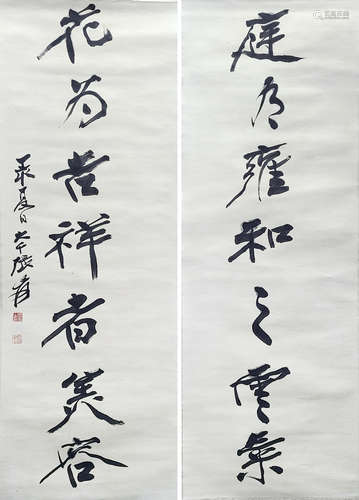 庭有雍和之雲氣
花為吉祥者美容
夏日大千張爰